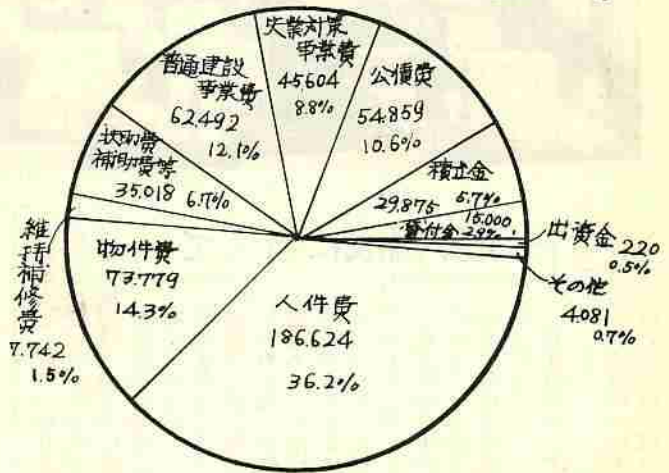 失業対策
事業費
45.604
8.8%
公債費
54.859
10.6%
積立金
5.7%
29.875
15.000
貸付金 2.9%
出資金 220
0.5%
その他
4.081
0.7%
人件費
186.624
36.2%
物件費
73.779
14.3%
維持補修費
7.742
1.5%
扶助費
補助費等
35.018 6.7%
普通建設
事業費
62.492
12.1%